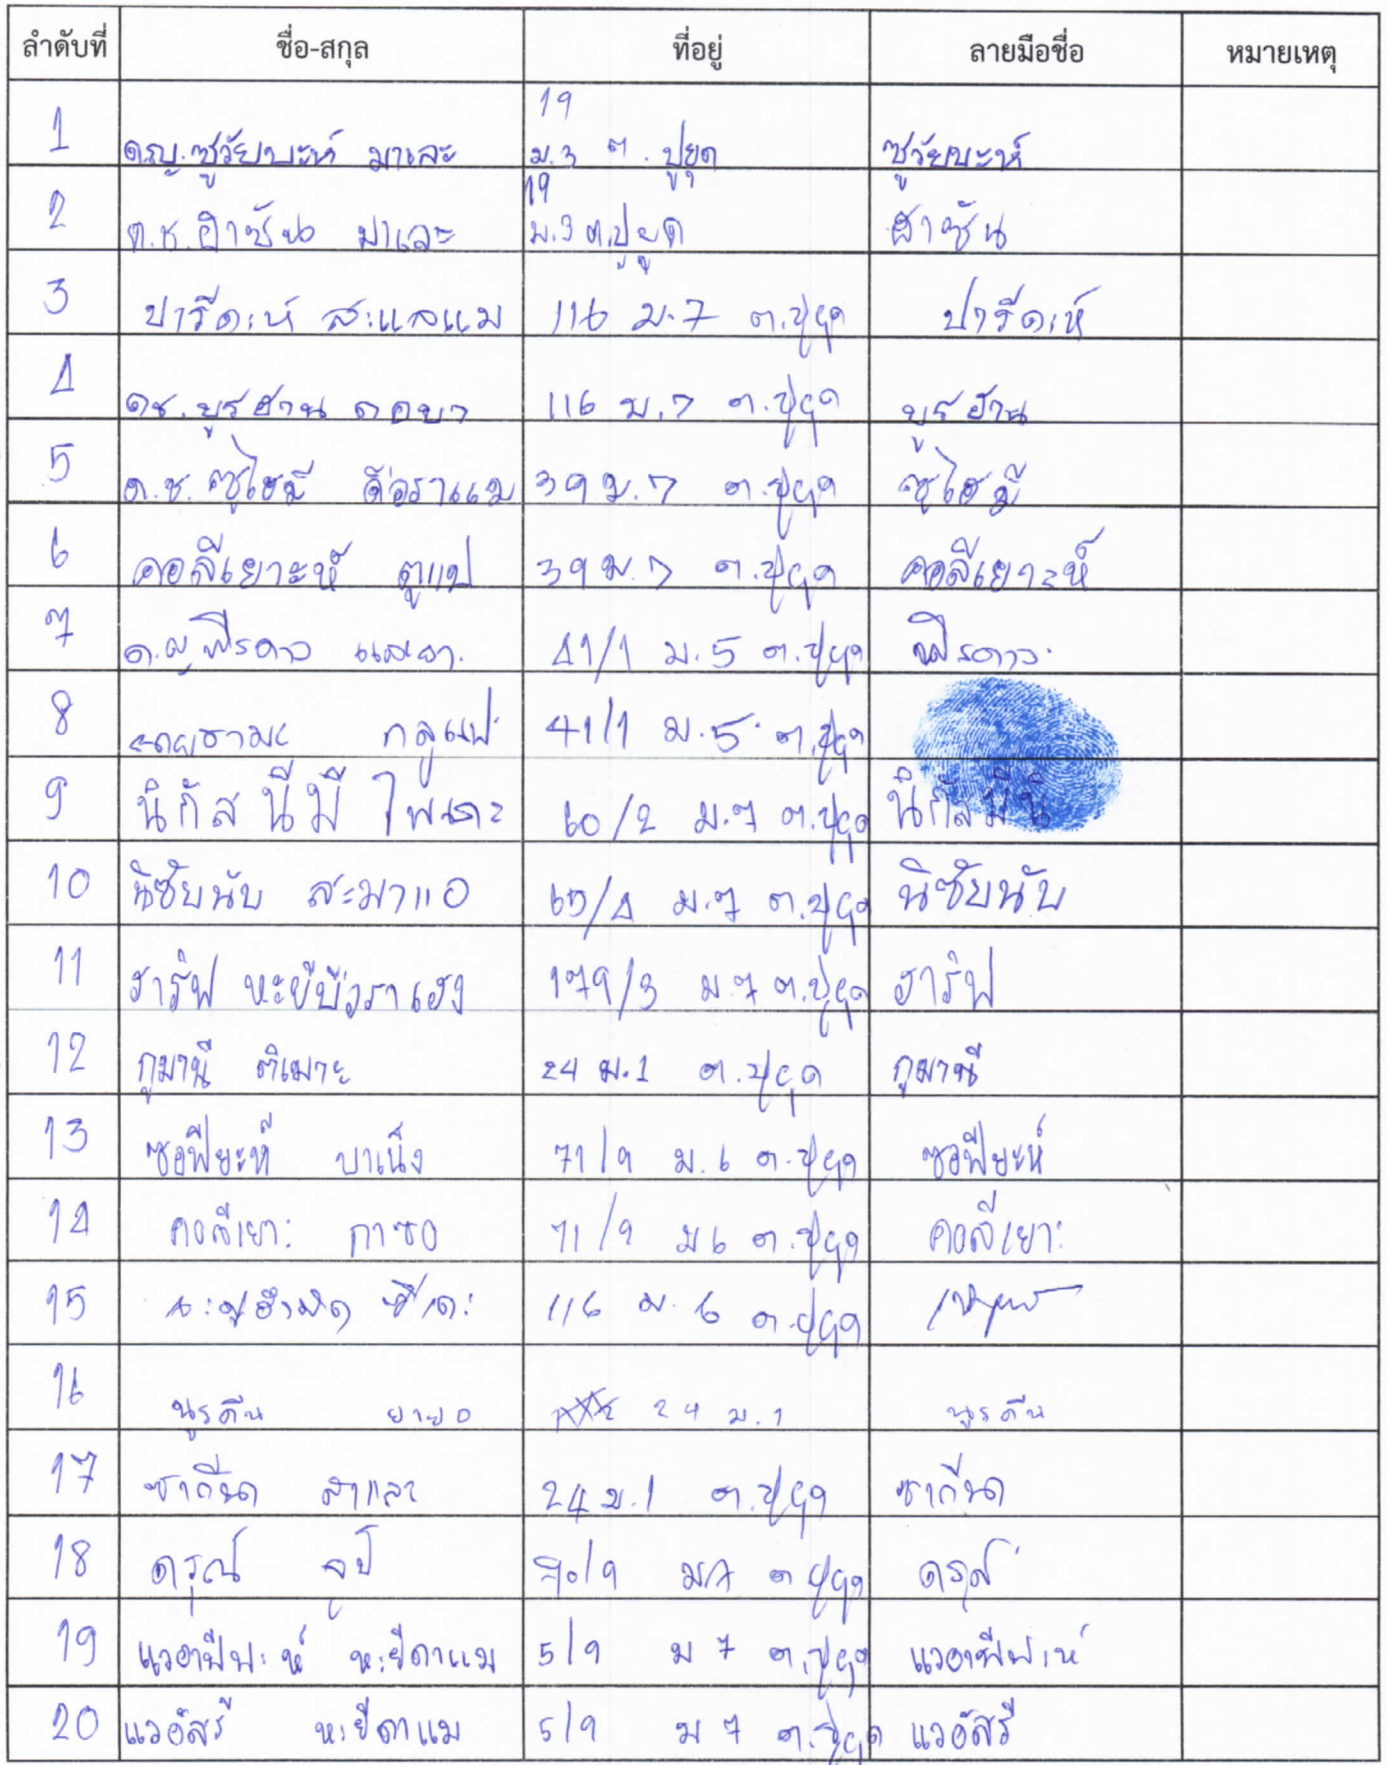 ลำดับที่ ชื่อ-สกุล ที่อยู่ ลายมือชื่อ หมายเหตุ
1 ด.ญ.ซูวัยบะห์ มาเละ 19 ม.3 ต.ปูยุด ซูวัยบะห์
2 ด.ช.ฮาซัน มาเละ 19 ม.3 ต.ปูยุด ฮาซัน
3 ปารีดะห์ สะแลแม 116 ม.7 ต.ปูยุด ปารีดะห์
4 ดช.บูรฮาน 116 ม.7 ต.ปูยุด บูรฮาน
5 ด.ช.ซูไฮมี ดือราแม 39 ม.7 ต.ปูยุด ซูไฮมี
6 คอลีเยาะห์ ตูแป 39 ม.7 ต.ปูยุด คอลีเยาะห์
7 ด.ญ.ฟิรดาว 41/1 ม.5 ต.ปูยุด ฟิรดาว
8 41/1 ม.5 ต.ปูยุด
9 นิกัสนีมี 60/2 ม.7 ต.ปูยุด
10 นิซัยนับ สะมาแอ 65/4 ม.7 ต.ปูยุด นิซัยนับ
11 ฮาริฟ หะยีบือราเฮง 179/3 ม.7 ต.ปูยุด ฮาริฟ
12 กูมานี ติเมาะ 24 ม.1 ต.ปูยุด กูมานี
13 ซอฟียะห์ บาเน็ง 71/9 ม.6 ต.ปูยุด ซอฟียะห์
14 คอลีเยาะ กาซอ 71/9 ม 6 ต.ปูยุด คอลีเยาะ
15 116 ม.6 ต.ปูยุด
16 นูรดีน ยายอ 24 ม.1 นูรดีน
17 ซากีนา สาและ 24 ม.1 ต.ปูยุด ซากีนา
18 ดรุณี ม.7 ต ปูยุด
19 แวอาฟีฟะห์ หะยีดาแม 5/9 ม 7 ต.ปูยุด แวอาฟีฟะห์
20 แวอัสรี หะยีดาแม 5/9 ม 7 ต.ปูยุด แวอัสรี